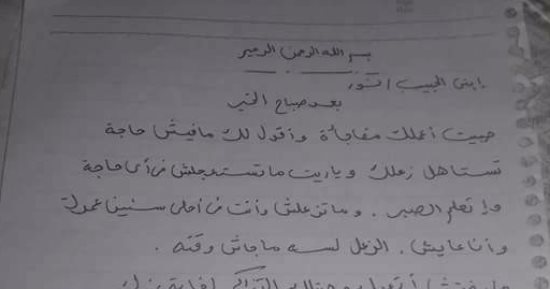 بسم الله الرحمن الرحيم
إبنى الحبيب أنور
بعد صباح الخير
حبيت أعملك مفاجأة وأقول لك مافيش حاجة
تستاهل زعلك وياريت ماتستعجلش فى أى حاجة
وإتعلم الصبر . وماتزعلش وأنت فى أحلى سنين عمرك
وأنا عايش . الزعل لسه ماجاش وقته .